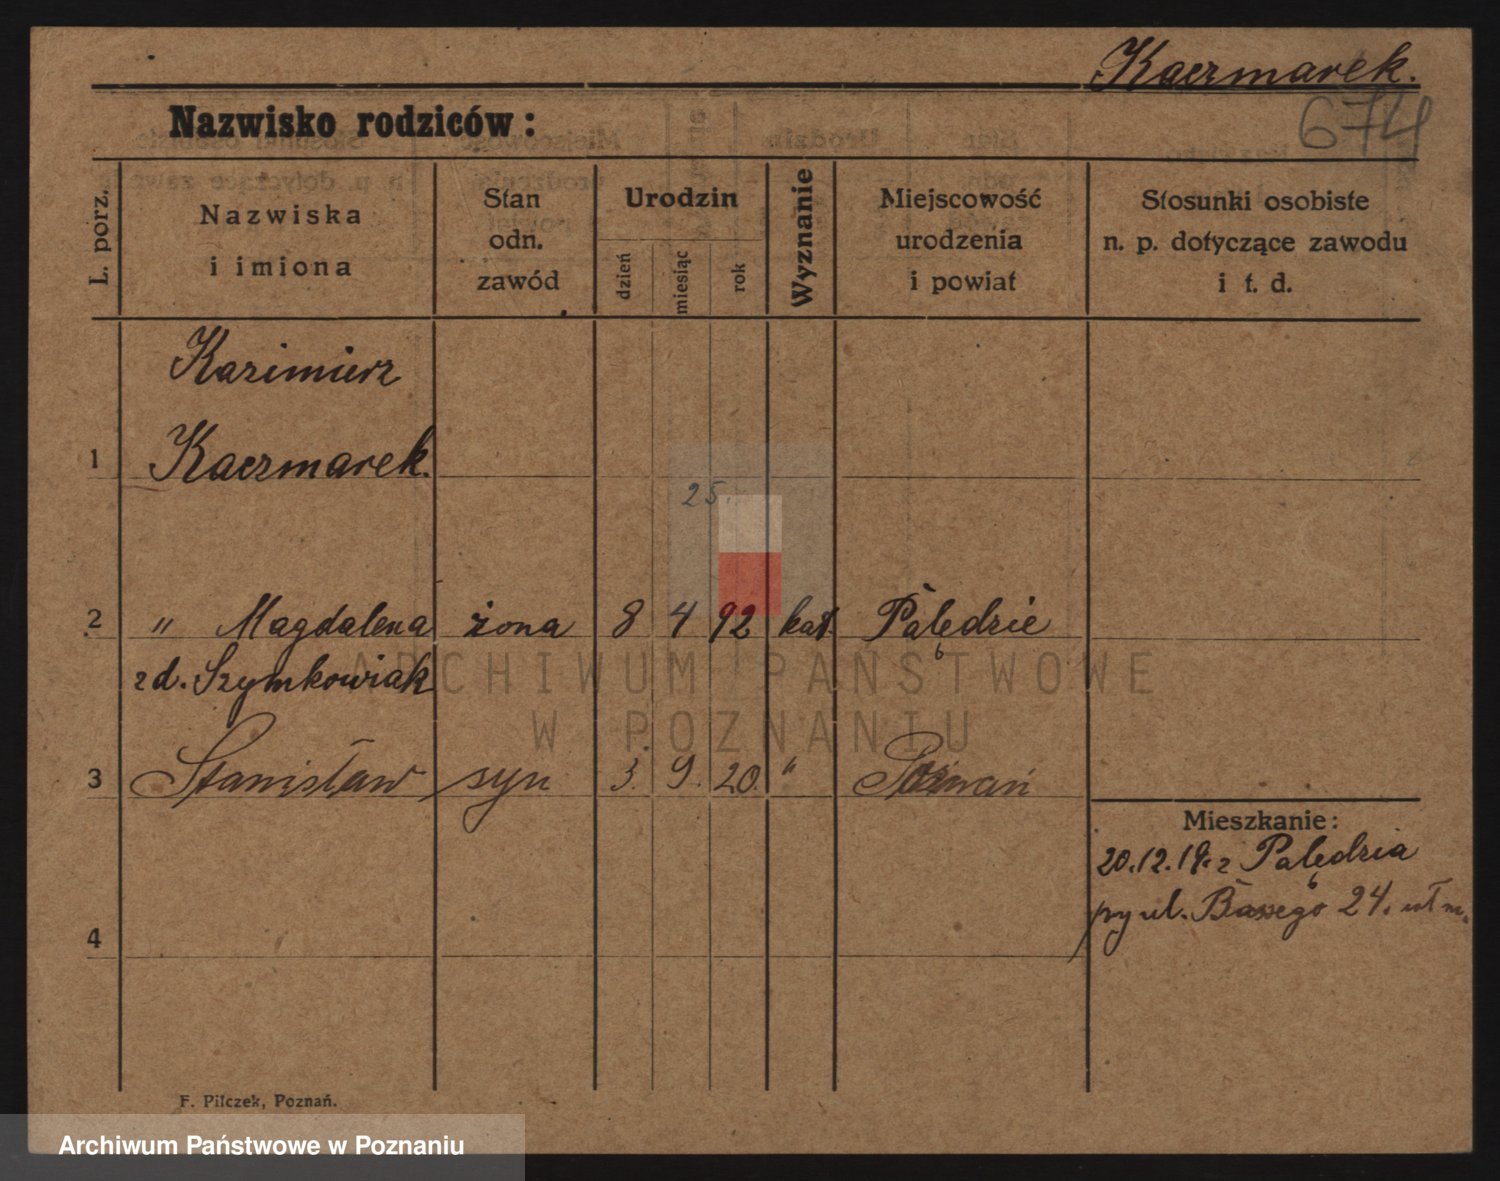 Kaczmarek.
674
Nazwisko rodziców:
L. porz.
Nazwiska
i imiona
Stan
odn.
zawód
Urodzin
dzień
miesiąc
rok
Wyznanie
Miejscowość
urodzenia
i powiat
Stosunki osobiste
n. p. dotyczące zawodu
i t. d.
Kazimierz
1 Kaczmarek.
25.
2 " Magdalena żona 8 4 92 kat. Palędzie
z d. Szymkowiak
3 Stanisław syn 3. 9. 20. " Poznań
Mieszkanie:
20.12.19. z Palędzia
przy ul. 24.
4
F. Pilczek, Poznań.
ARCHIWUM PAŃSTWOWE
W POZNANIU
Archiwum Państwowe w Poznaniu